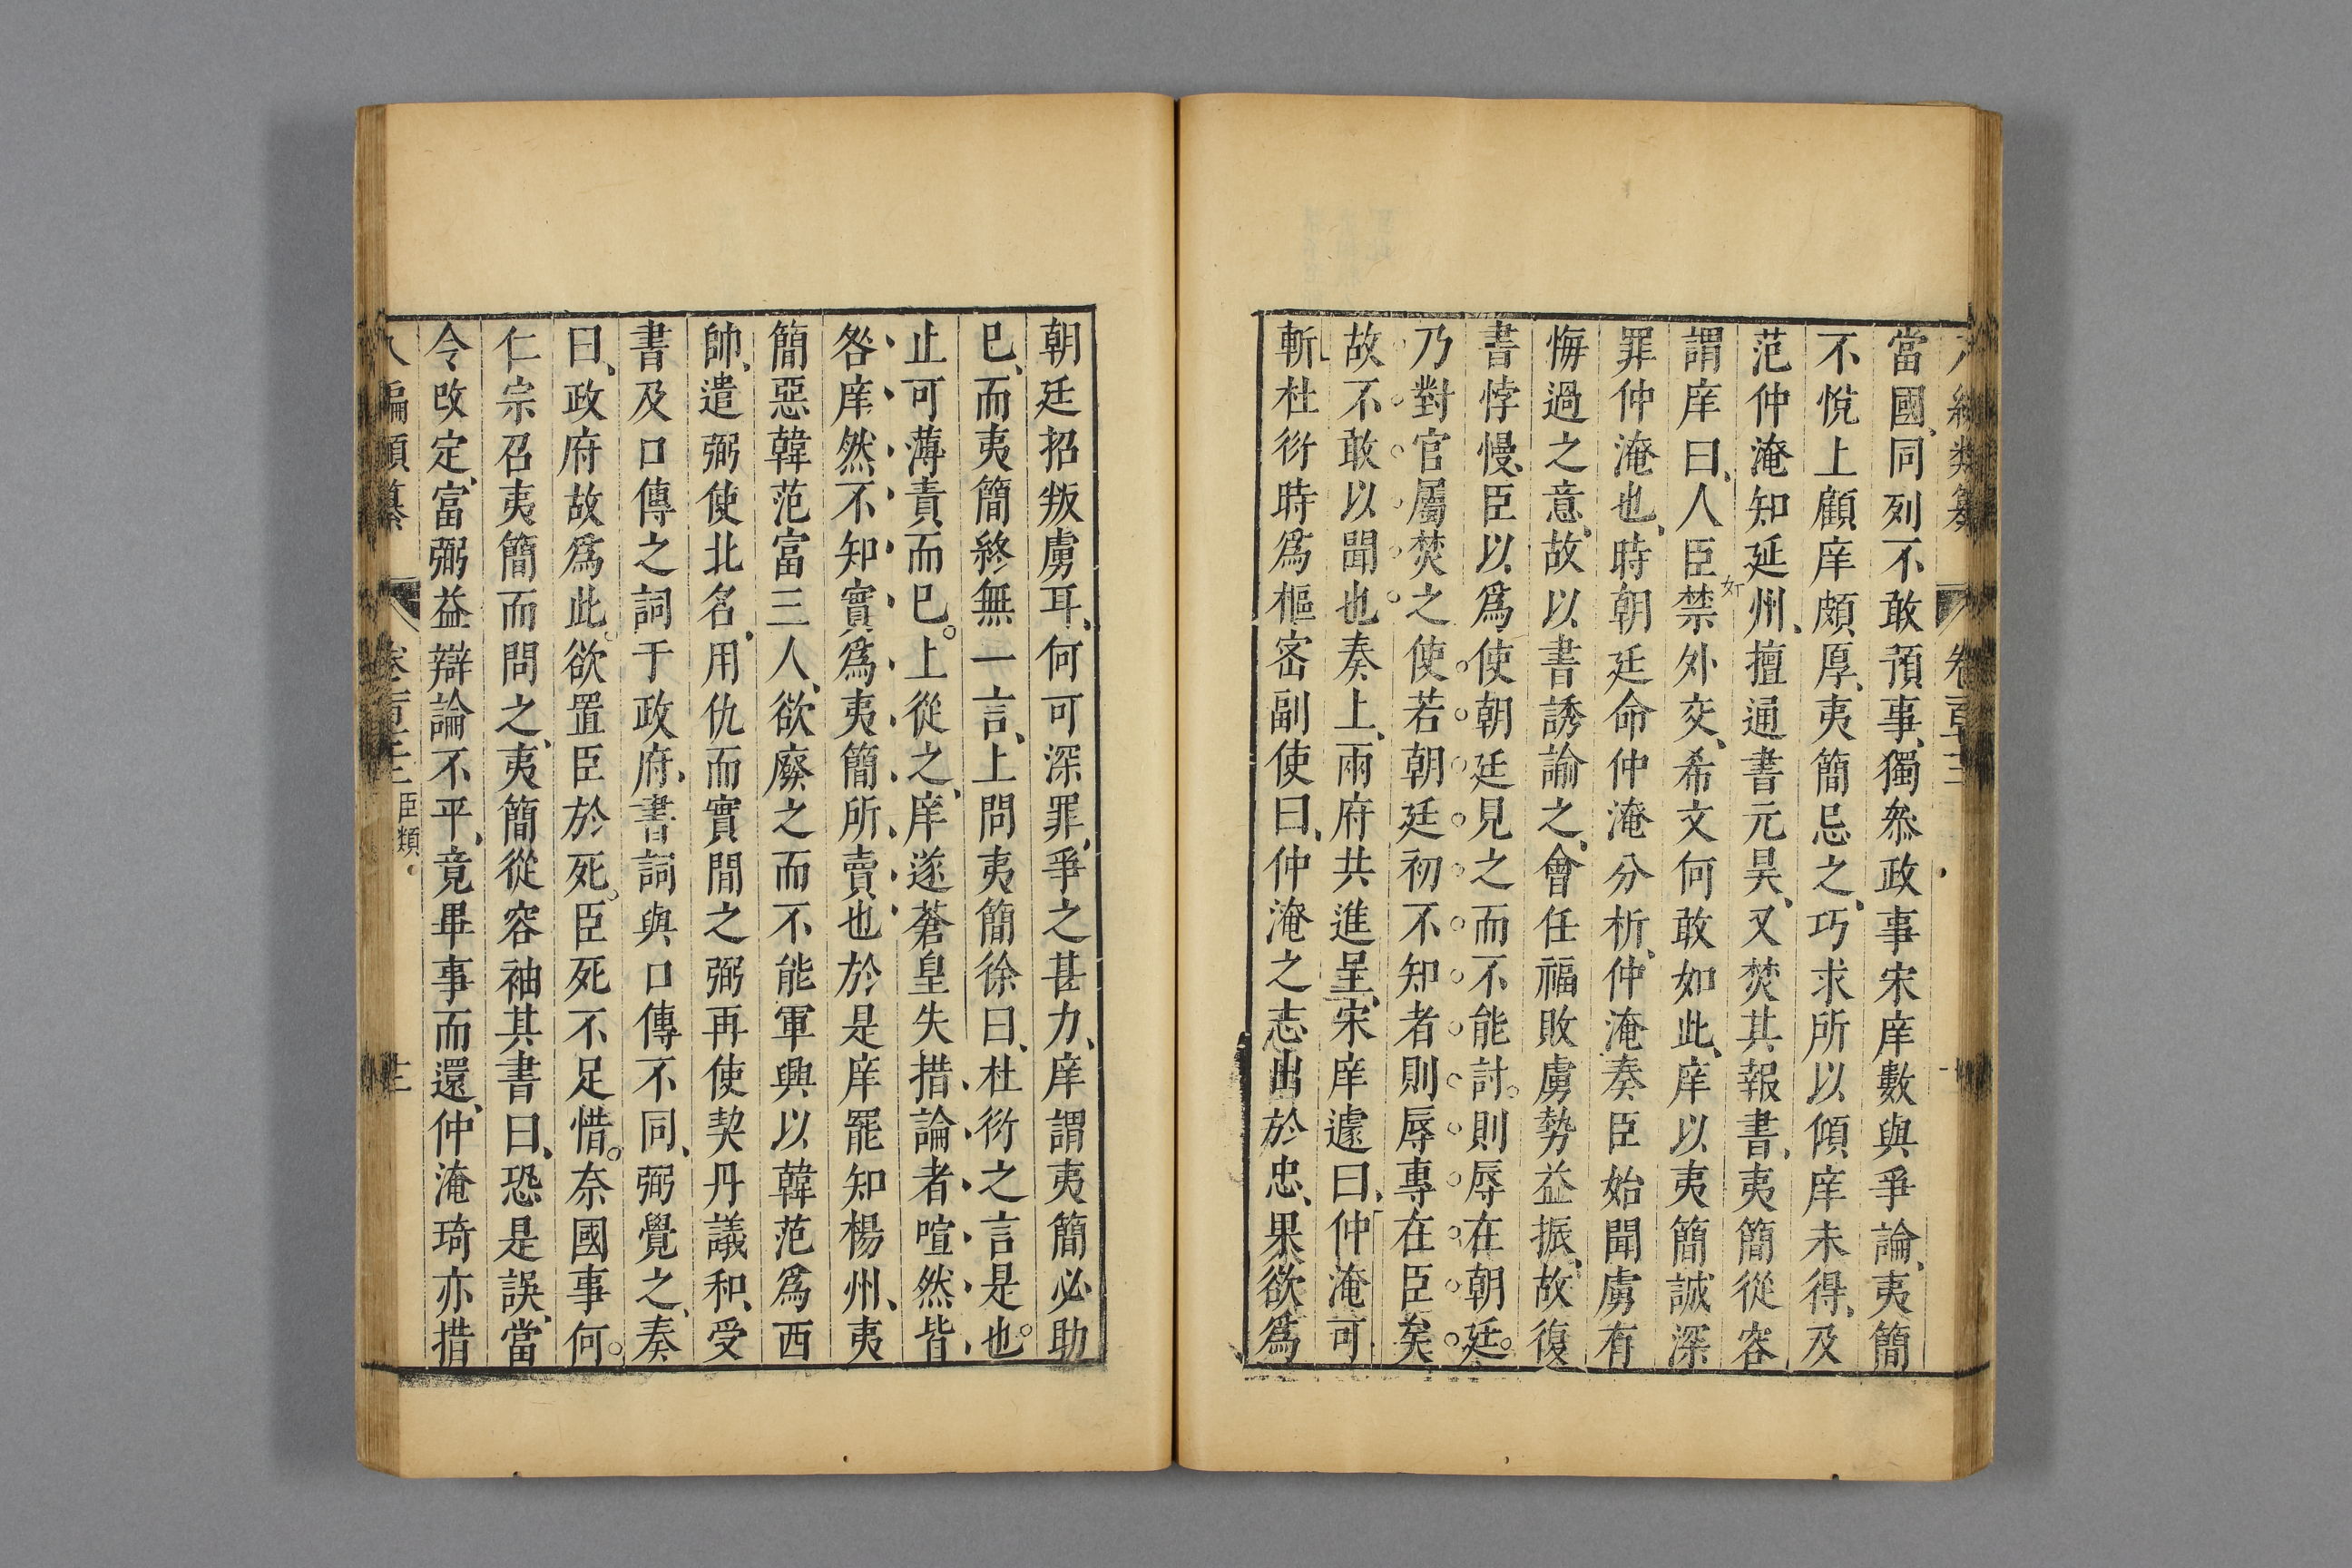 八編類纂 卷百三
當國、同列不敢預事、獨叅政事宋庠數與爭論、夷簡
不悅上顧庠頗厚、夷簡忌之、巧求所以傾庠未得、及
范仲淹知延州、擅通書元昊、又焚其報書、夷簡從容
謂庠曰、人臣禁外交、希文何敢如此、庠以夷簡誠深
奸
罪仲淹也、時朝廷命仲淹分析、仲淹奏臣始聞虜有
悔過之意、故以書誘諭之、會任福敗虜勢益振、故復
書悖慢、臣以爲使朝廷見之而不能討。則辱在朝廷。
乃對官屬焚之使若朝廷初不知者則辱專在臣矣
故不敢以聞也奏上、兩府共進呈、宋庠遽曰、仲淹可
斬杜衍時爲樞密副使曰、仲淹之志出於忠、果欲爲
朝廷招叛虜耳、何可深罪、爭之甚力、庠謂夷簡必助
已、而夷簡終無一言、上問夷簡徐曰、杜衍之言是也。
止可薄責而已。上從之、庠遂蒼皇失措論者喧然皆
咎庠然不知實爲夷簡所賣也於是庠罷知楊州、夷
簡惡韓范富三人、欲廢之而不能軍興以韓范爲西
帥、遣弼使北名、用仇而實間之弼再使契丹議和、受
書及口傳之詞于政府、書詞與口傳不同、弼覺之、奏
曰、政府故爲此。欲置臣於死。臣死不足惜。奈國事何。
仁宗召夷簡而問之、夷簡從容袖其書曰、恐是誤、當
令改定、富弼益辯論不平、竟畢事而還、仲淹琦亦措
八編類纂 卷百三 臣類